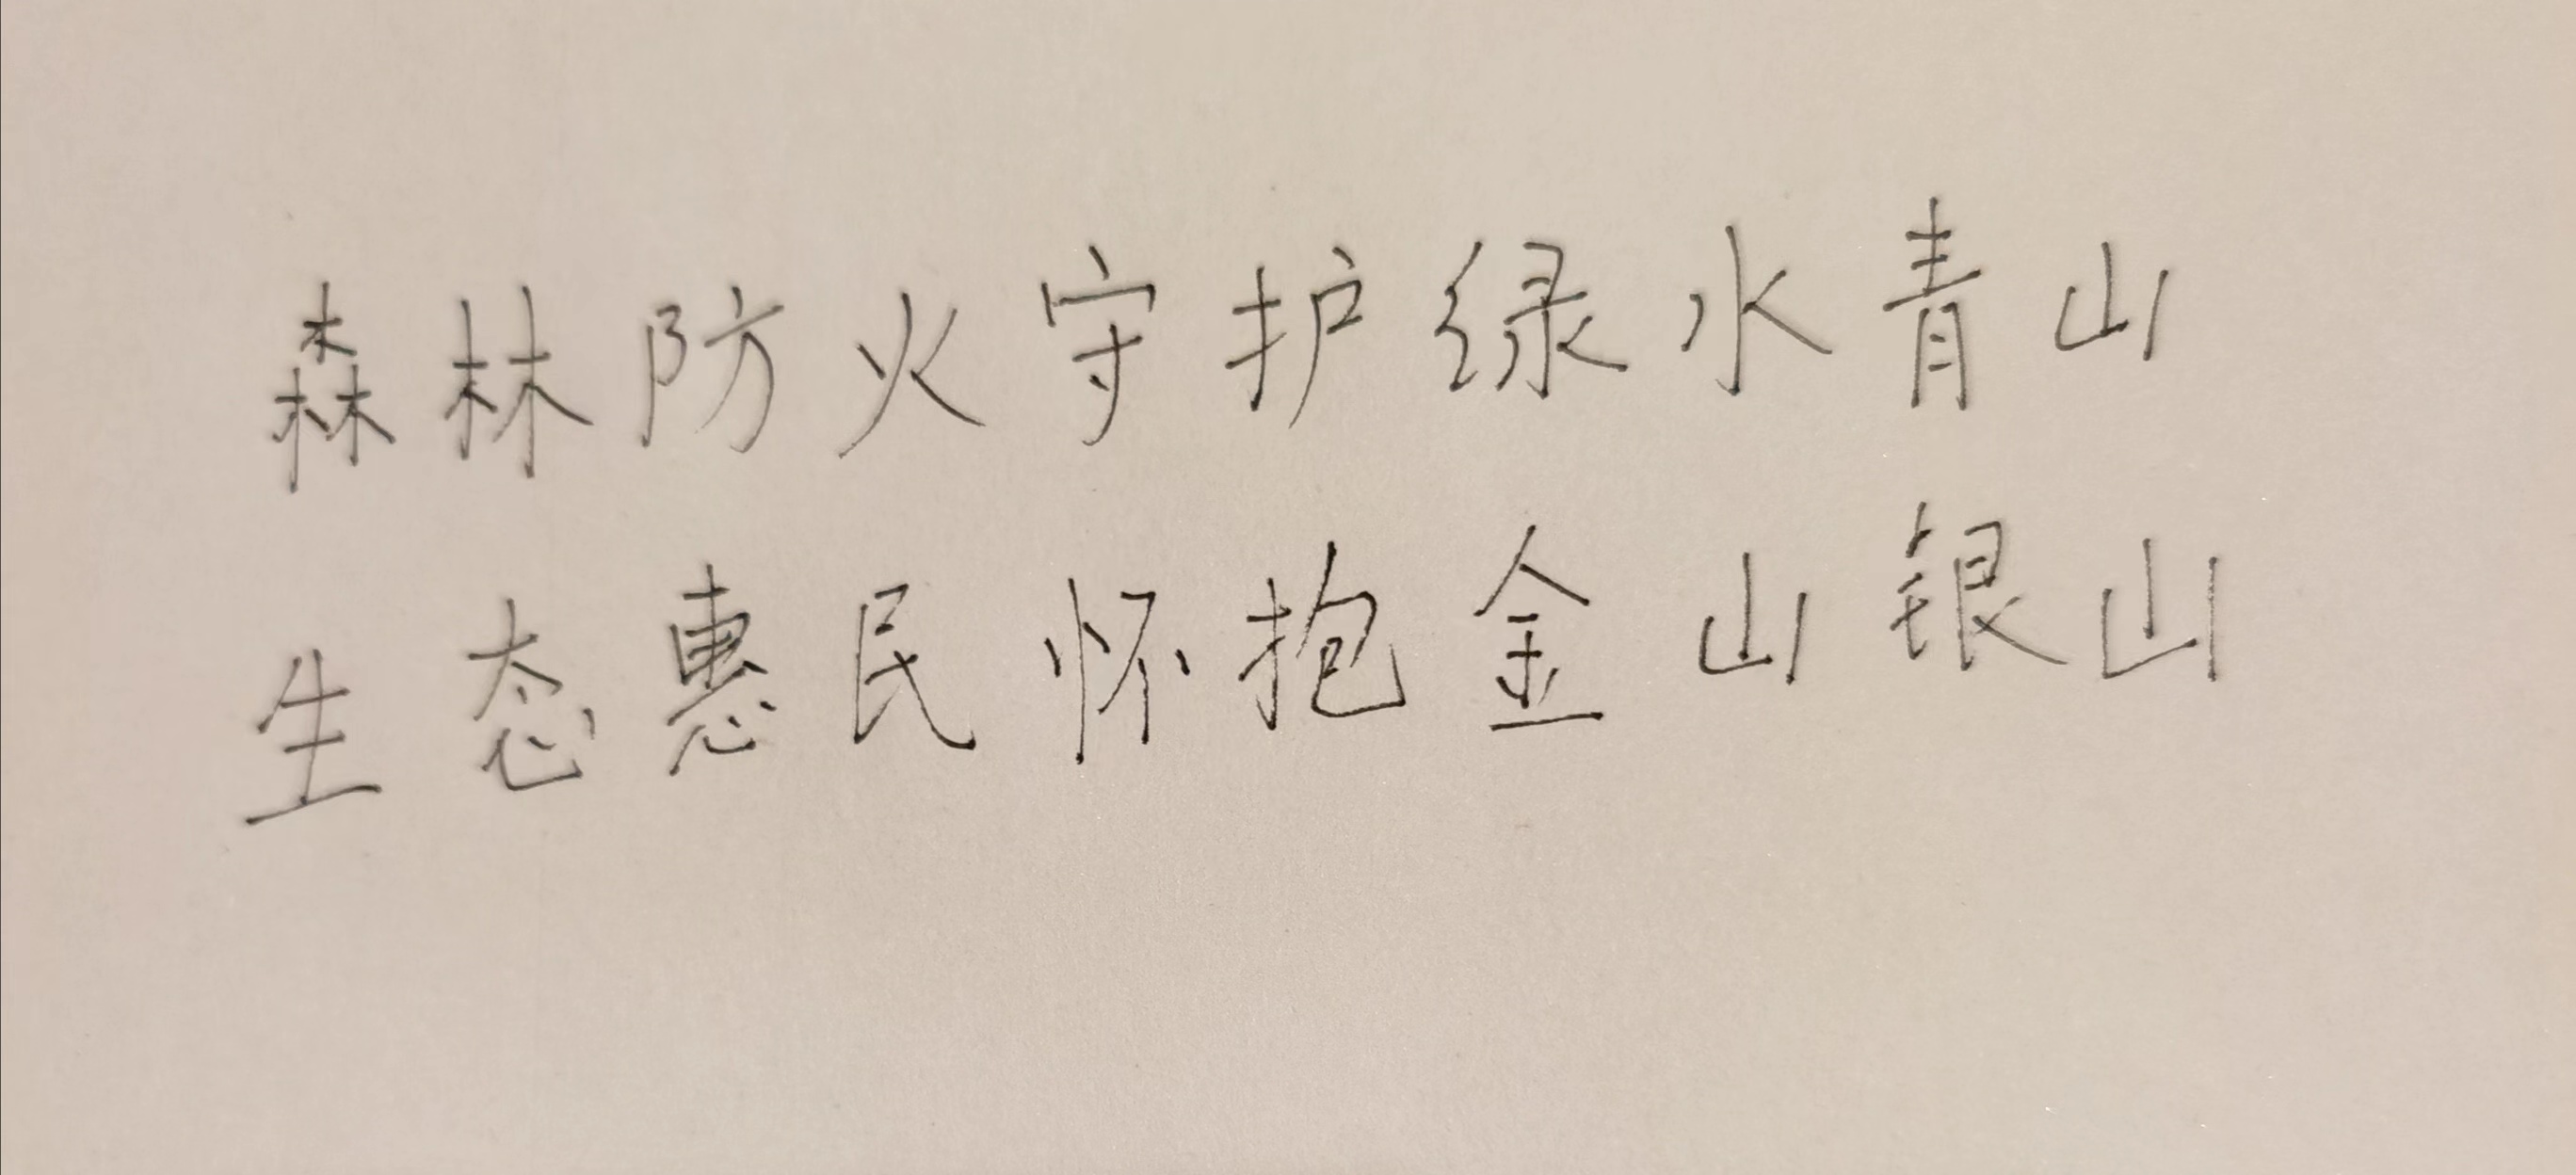 森林防火守护绿水青山
生态惠民怀抱金山银山